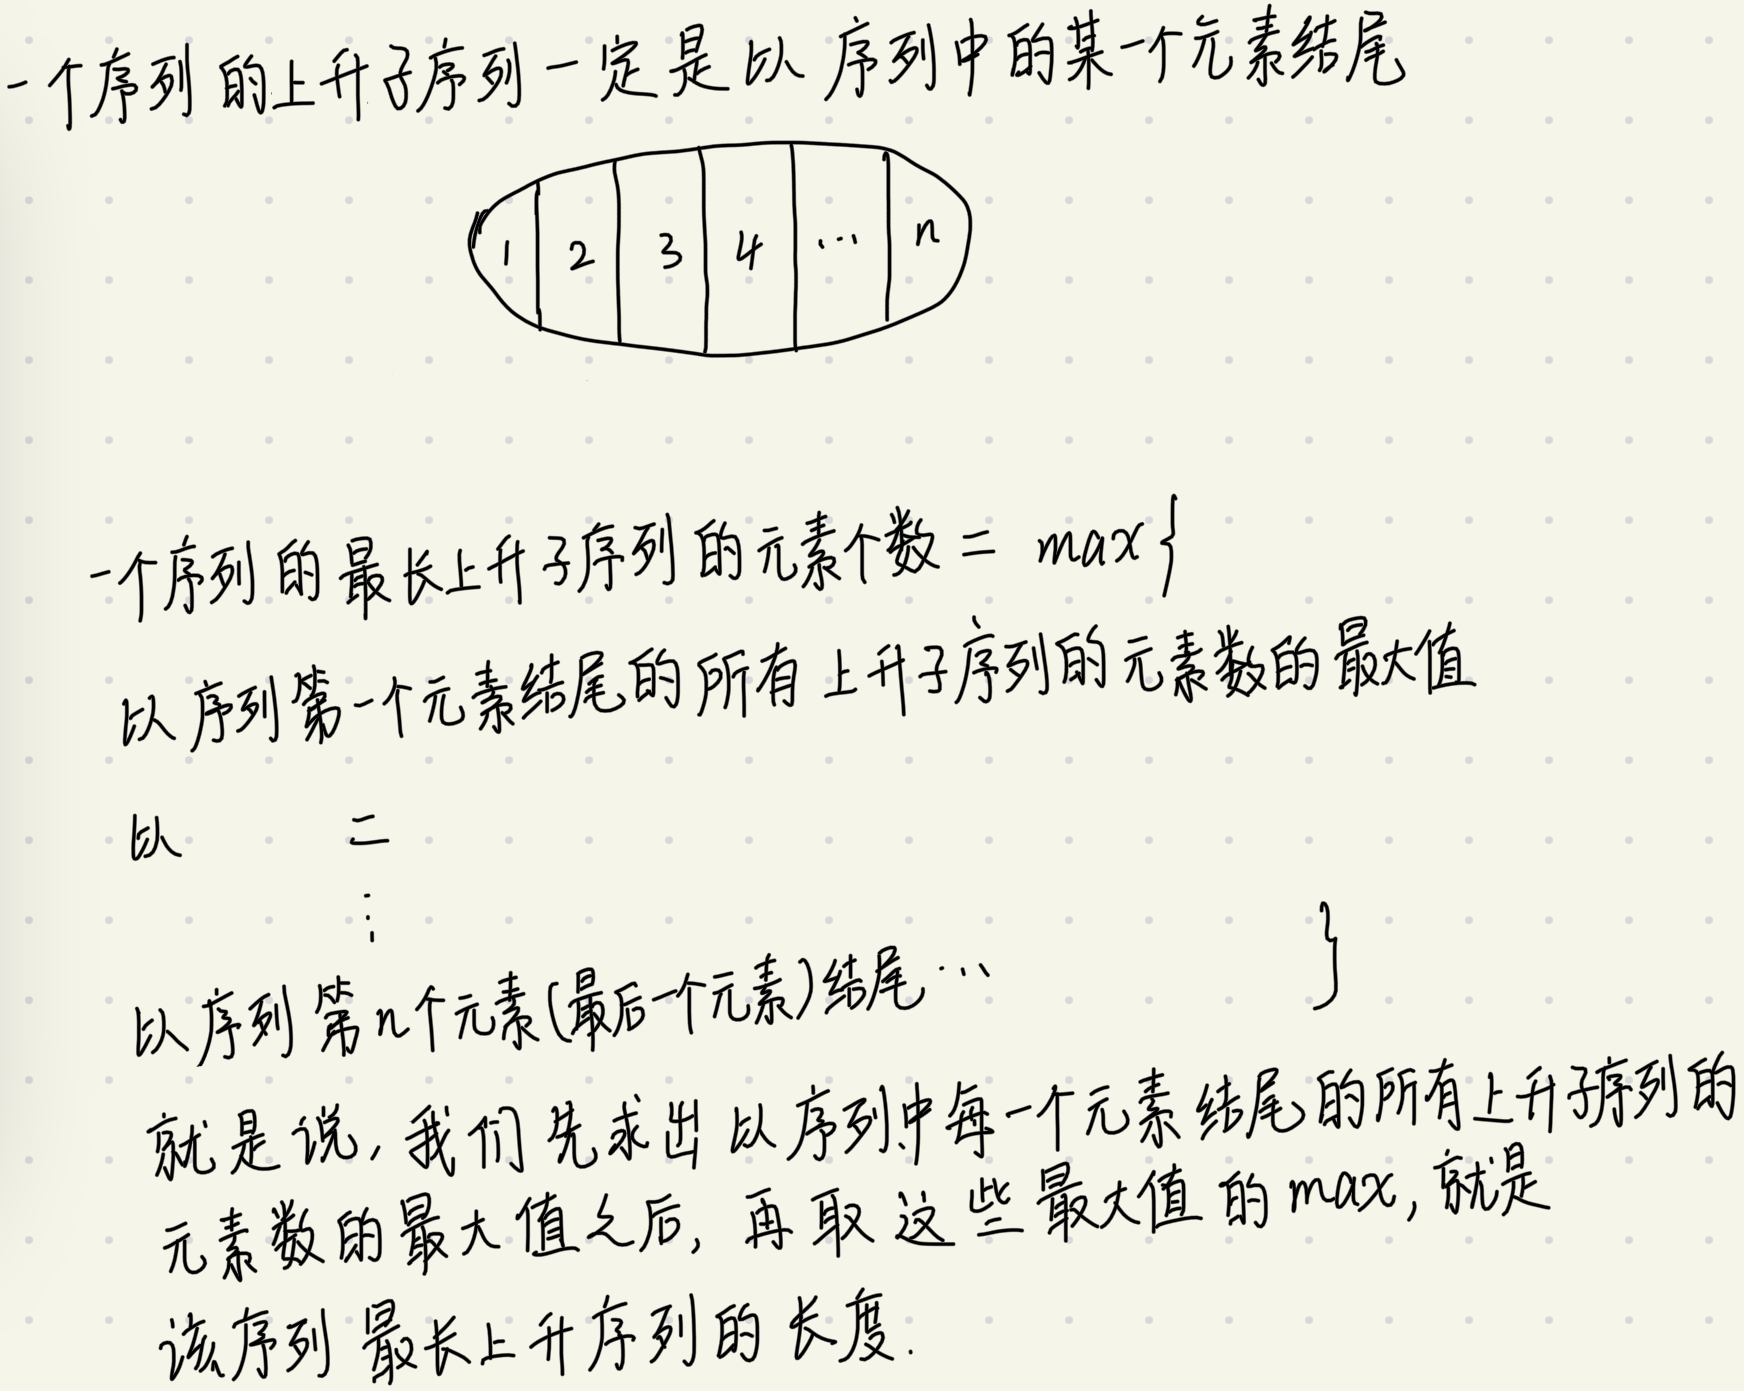 一个序列的上升子序列一定是以序列中的某一个元素结尾
1 2 3 4 ... n
一个序列的最长上升子序列的元素个数 = max{
以序列第一个元素结尾的所有上升子序列的元素数的最大值
以 二
⋮
以序列第n个元素(最后一个元素)结尾... }
就是说,我们先求出以序列中每一个元素结尾的所有上升子序列的
元素数的最大值之后,再取这些最大值的max,就是
该序列最长上升序列的长度.